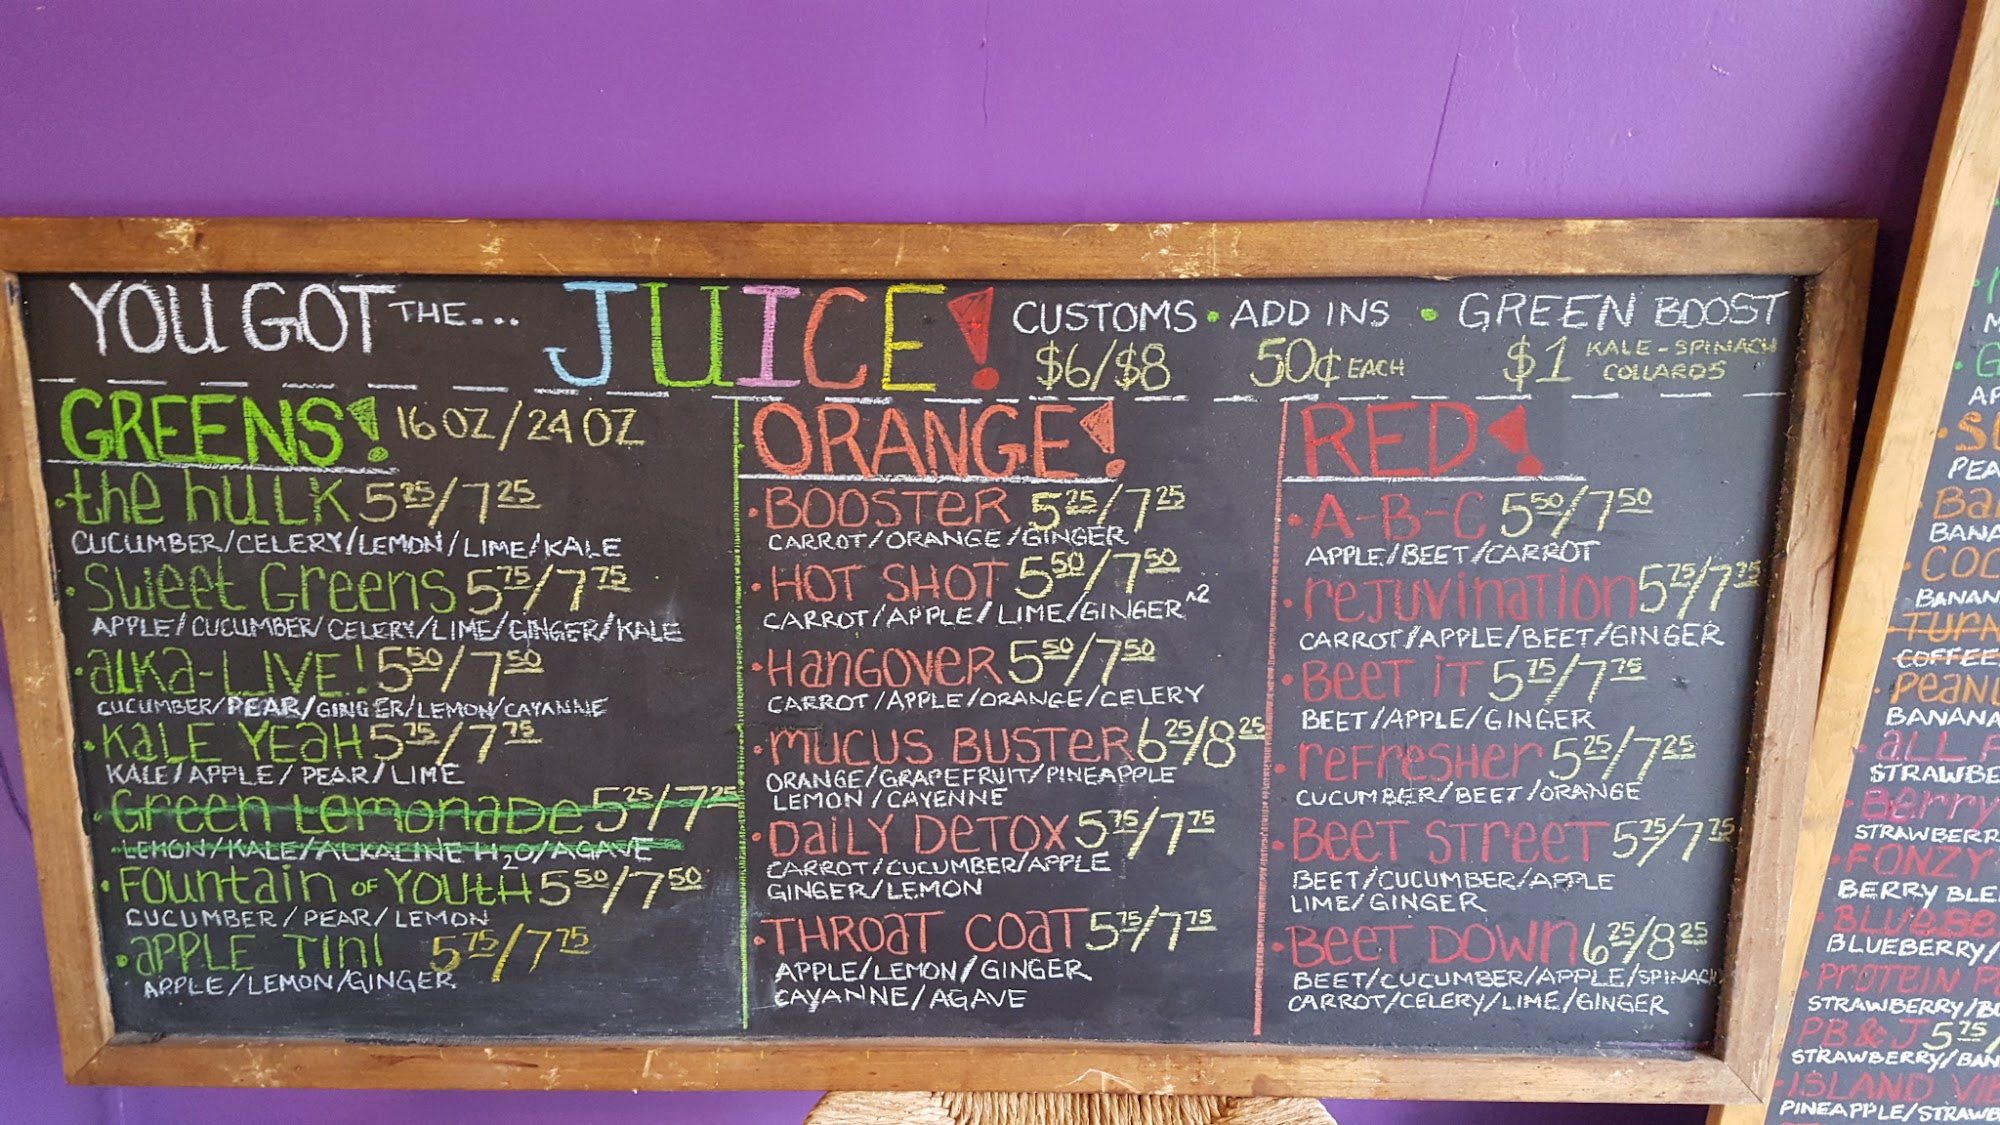 YOU GOT THE... JUICE!
CUSTOMS • ADD INS • GREEN BOOST
$6/$8 50¢ EACH $1 KALE - SPINACH
COLLARDS
GREENS! 16 OZ/24 OZ
• the HULK 5 25/7 25
CUCUMBER/CELERY/LEMON/LIME/KALE
• SWEET GREENS 5 75/7 75
APPLE/CUCUMBER/CELERY/LIME/GINGER/KALE
• alKa-LIVE! 5 50/7 50
CUCUMBER/PEAR/GINGER/LEMON/CAYANNE
• KALE YEAH 5 75/7 75
KALE/APPLE/PEAR/LIME
• Green Lemonade 5 25/7 25
LEMON/KALE/ALKALINE H2O/AGAVE
• FOUNTAIN OF YOUTH 5 50/7 50
CUCUMBER/PEAR/LEMON
• APPLE TINI 5 75/7 75
APPLE/LEMON/GINGER
ORANGE!
• BOOSTER 5 25/7 25
CARROT/ORANGE/GINGER
• HOT SHOT 5 50/7 50
CARROT/APPLE/LIME/GINGER ^2
• HANGOVER 5 50/7 50
CARROT/APPLE/ORANGE/CELERY
• MUCUS BUSTER 6 25/8 25
ORANGE/GRAPEFRUIT/PINEAPPLE
LEMON/CAYENNE
• DAILY DETOX 5 75/7 75
CARROT/CUCUMBER/APPLE
GINGER/LEMON
• THROAT COAT 5 75/7 75
APPLE/LEMON/GINGER
CAYANNE/AGAVE
RED!
• A-B-C 5 50/7 50
APPLE/BEET/CARROT
• REJUVINATION 5 75/7 75
CARROT/APPLE/BEET/GINGER
• BEET IT 5 75/7 75
BEET/APPLE/GINGER
• REFRESHER 5 25/7 25
CUCUMBER/BEET/ORANGE
• BEET STREET 5 75/7 75
BEET/CUCUMBER/APPLE
LIME/GINGER
• BEET DOWN 6 25/8 25
BEET/CUCUMBER/APPLE/SPINACH
CARROT/CELERY/LIME/GINGER
PEA
BANA
BANAN
COFFEE
BANANA
• ALL F
STRAWBE
• BERRY
STRAWBERR
• FONZY
BERRY BLE
• BLUEBE
BLUEBERRY/
• PROTEIN P
STRAWBERRY/B
PB & J 5 75/
STRAWBERRY/BAN
• ISLAND VI
PINEAPPLE/STRAWB